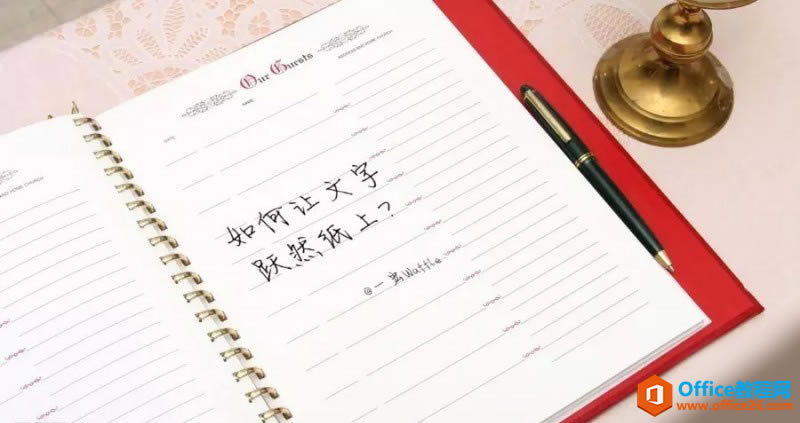 Our Guests
NAME
ADDRESS AND HOME CHURCH
DATE
AND HOME CHURCH
如何让文字
跃然纸上？
@一窝Wattle
Office教程网
www.office26.com